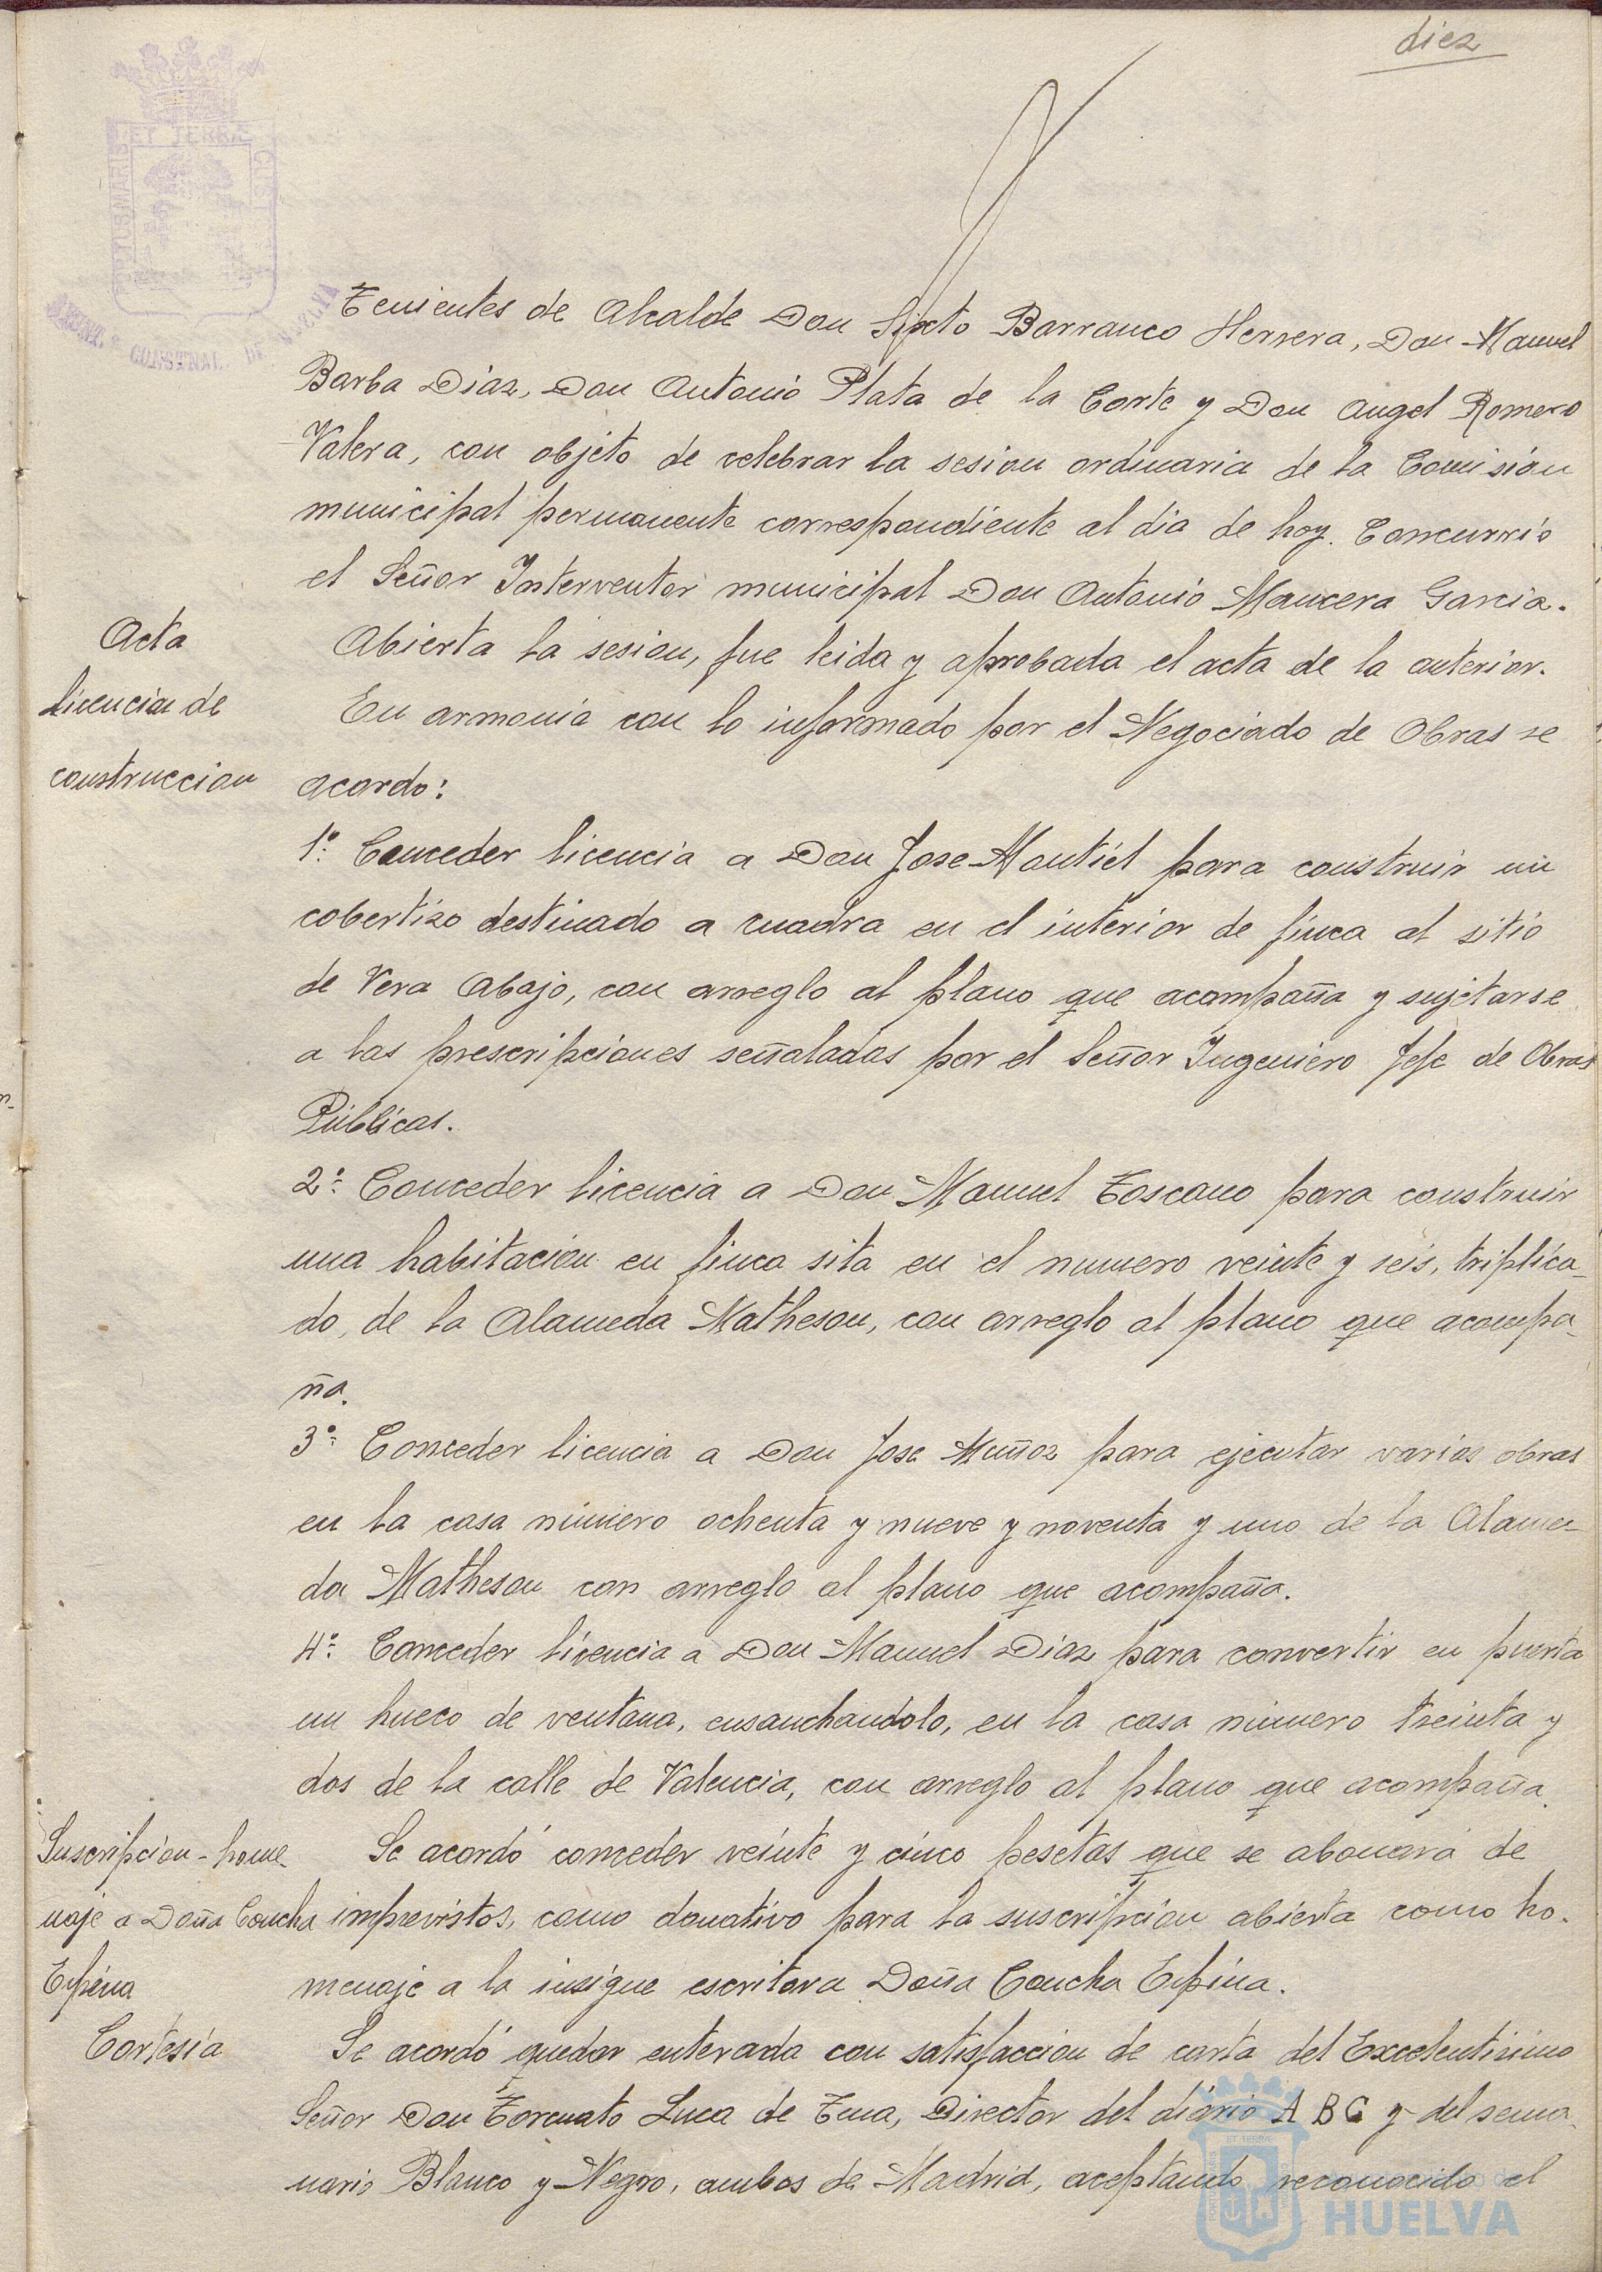 diez
Tenientes de Alcalde Don Sixto Barranco Herrera, Don Manuel
Barba Diaz, Don Antonio Plata de la Corte y Don Angel Romero
Valera, con objeto de celebrar la sesion ordinaria de la Comisión
municipal permanente correspondiente al dia de hoy. Concurrió
el Señor Interventor municipal Don Antonio Mancera Garcia.
Acta
Abierta la sesion, fue leida y aprobada el acta de la anterior.
Licencias de
construccion
En armonia con lo informado por el Negociado de Obras se
acordo:
1º Conceder licencia a Don Jose Montiel para construir un
cobertizo destinado a cuadra en el interior de finca al sitio
de Vera Abajo, con arreglo al plano que acompaña y sujetarse
a las prescripciones señaladas por el Señor Ingeniero Jefe de Obras
Públicas.
2º Conceder licencia a Don Manuel Toscano para construir
una habitación en finca sita en el numero veinte y seis, triplica-
do, de la Alameda Matheson, con arreglo al plano que acompa-
ña.
3º Conceder licencia a Don Jose Muñoz para ejecutar varias obras
en la casa número ochenta y nueve y noventa y uno de la Alame-
da Matheson con arreglo al plano que acompaña.
4º Conceder licencia a Don Manuel Diaz para convertir en puerta
un hueco de ventana, ensanchandolo, en la casa número treinta y
dos de la calle de Valencia, con arreglo al plano que acompaña.
Suscripcion-home-
naje a Doña Concha
Espina
Se acordó conceder veinte y cinco pesetas que se abonará de
imprevistos, como donativo para la suscripcion abierta como ho-
menaje a la insigne escritora Doña Concha Espina.
Cortesía
Se acordó quedar enterada con satisfaccion de carta del Excelentisimo
Señor Don Torcuato Luca de Tena, Director del diario A B C y del sema-
nario Blanco y Negro, ambos de Madrid, aceptando reconocido el
HUELVA